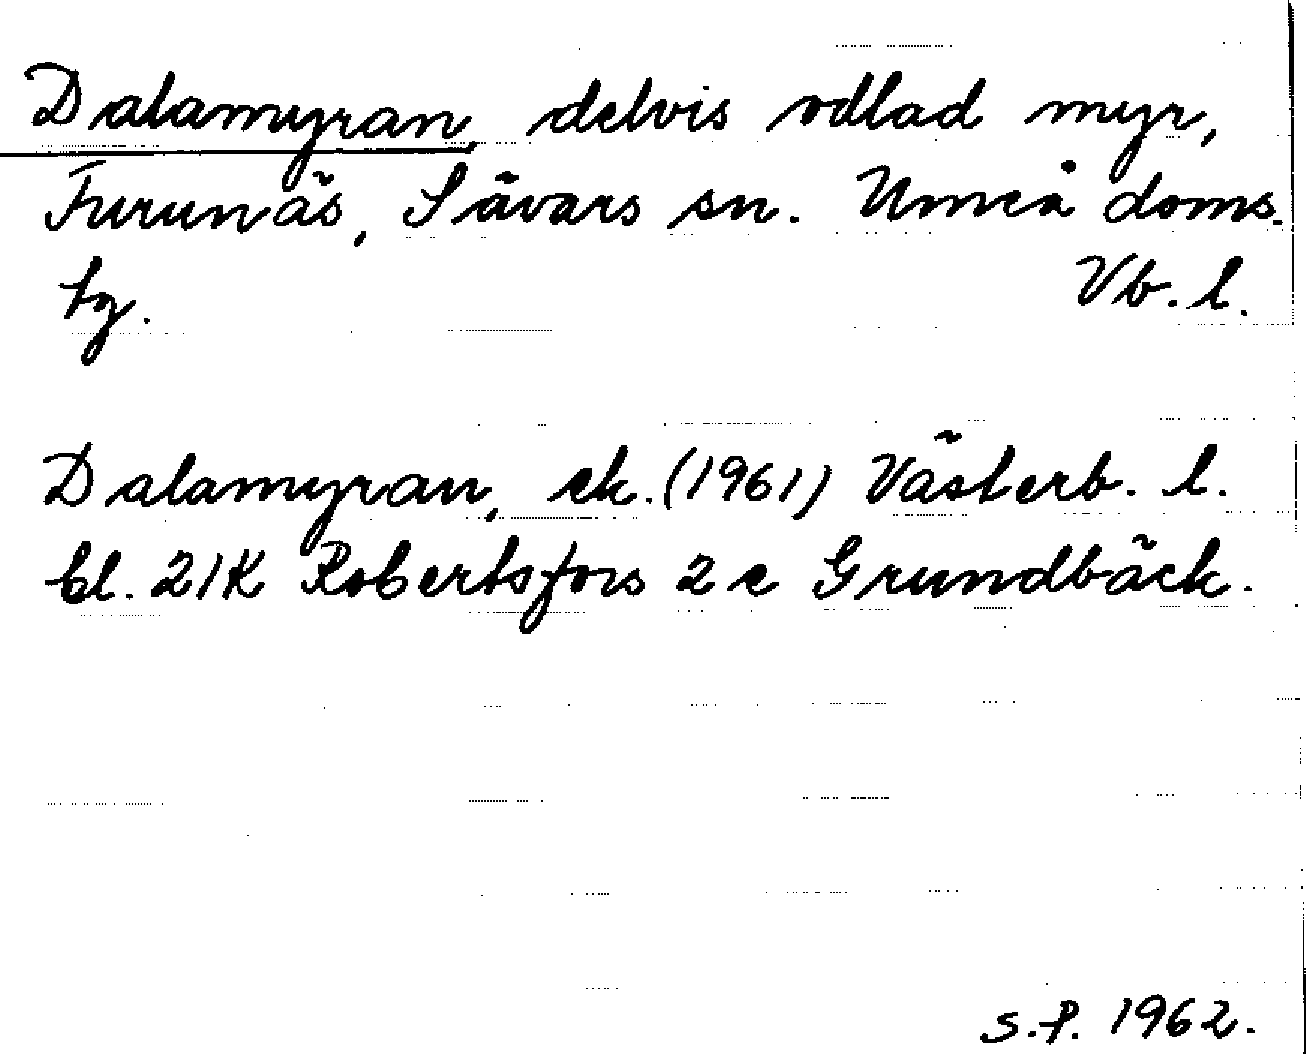 Dalamyran, delvis odlad myr,
Furunäs, Sävars sn. Umeå doms.
tg. Vb. l.
Dalamyran, ek. (1961) Västerb. l.
bl. 21K Robertsfors 2 c Grundbäck.
S.P. 1962.